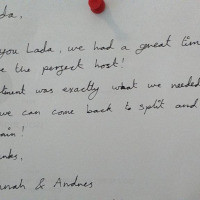 da,
you Lada, we had a great tim
e the perfect host!
tment was exactly what we needed
we can come back to split and
ain!
nks,
nnah & Andres